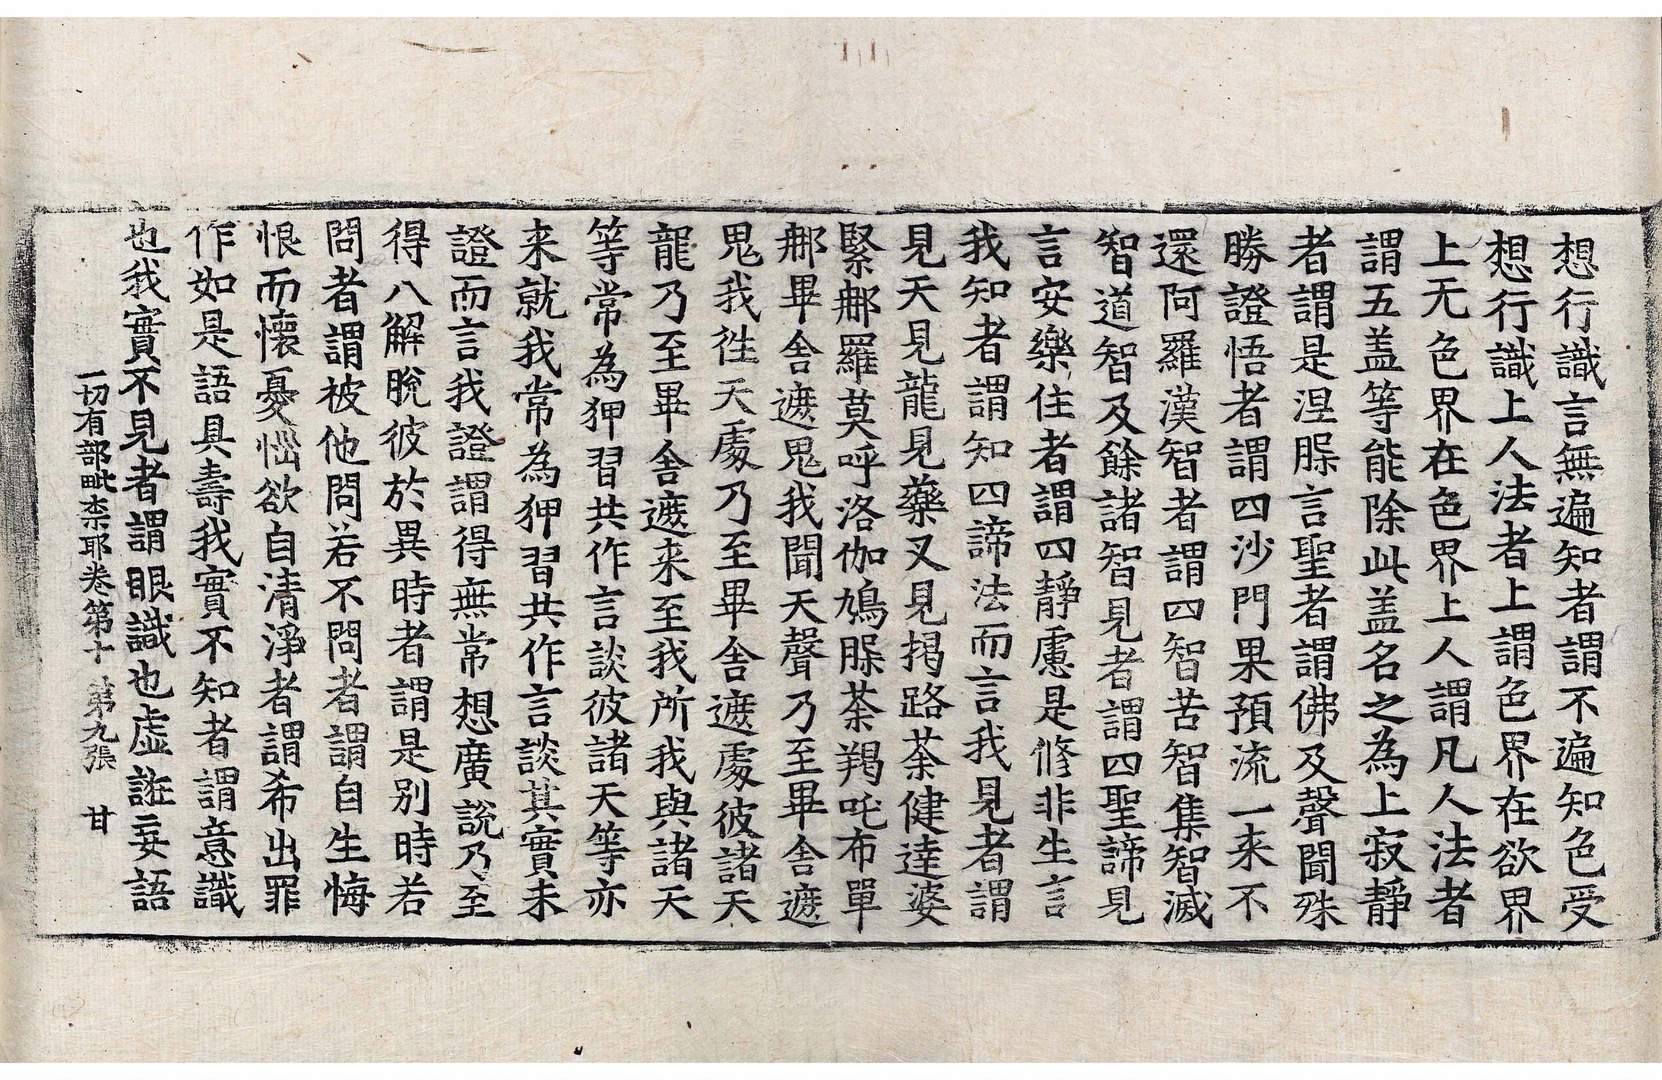 想行識言無遍知者謂不遍知色受
想行識上人法者上謂色界在欲界
上无色界在色界上人謂凡人法者
謂五盖等能除此盖名之為上寂靜
者謂是涅槃言聖者謂佛及聲聞殊
勝證悟者謂四沙門果預流一来不
還阿羅漢智者謂四智苦智集智滅
智道智及餘諸智見者謂四聖諦見
言安樂住者謂四靜慮是修非生言
我知者謂知四諦法而言我見者謂
見天見龍見藥叉見揭路荼健達婆
緊那羅莫呼洛伽鳩槃荼羯吒布單
那畢舍遮鬼我聞天聲乃至畢舍遮
鬼我徃天處乃至畢舍遮處彼諸天
龍乃至畢舍遮来至我所我與諸天
等常為狎習共作言談彼諸天等亦
来就我常為狎習共作言談其實未
證而言我證謂得無常想廣說乃至
得八解脫彼於異時者謂是別時若
問者謂被他問若不問者謂自生悔
恨而懷憂惱欲自清淨者謂希出罪
作如是語具壽我實不知者謂意識
也我實不見者謂眼識也虛誑妄語
一切有部毗柰耶卷第十 第九張 甘